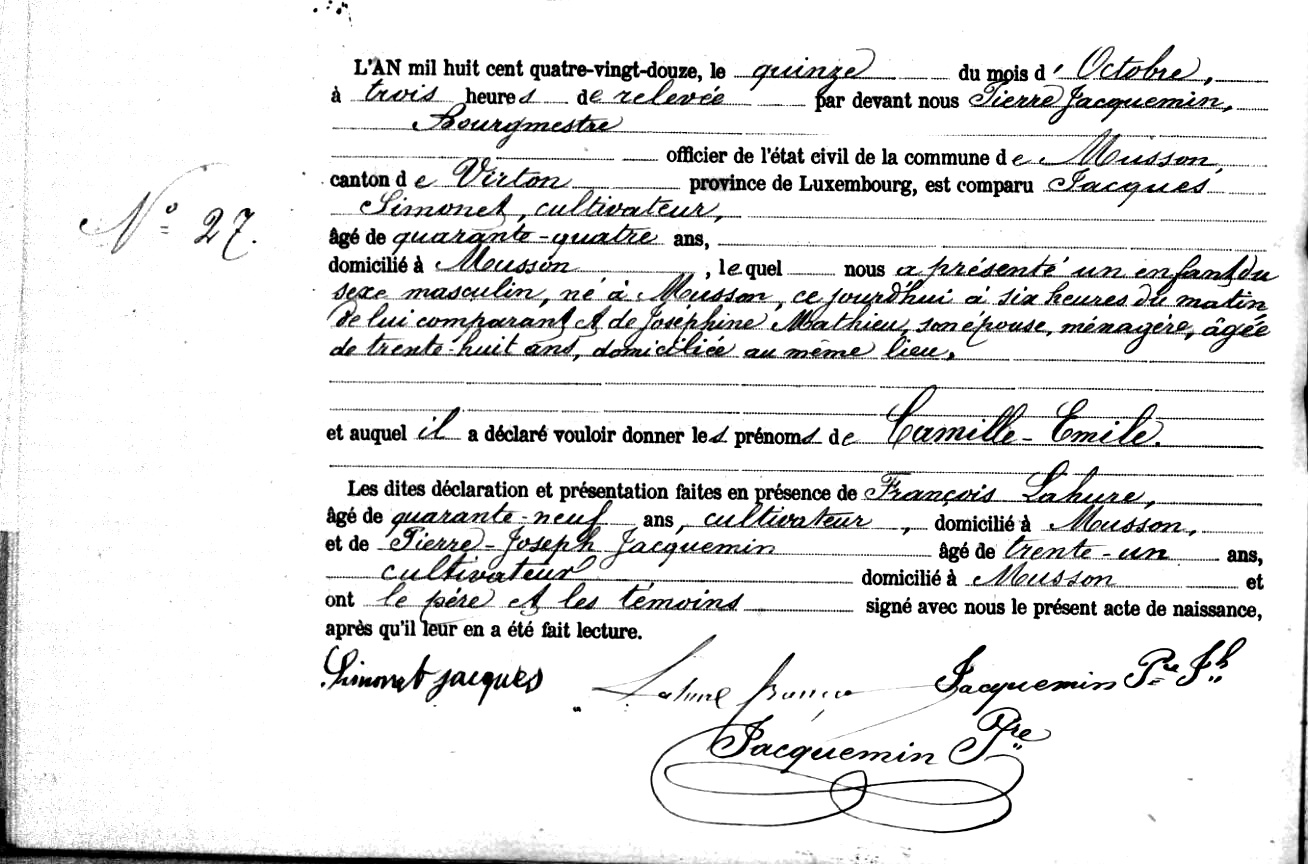 L'AN mil huit cent quatre-vingt-douze, le quinze du mois d' Octobre,
à trois heures de relevée par devant nous Pierre Jacquemin,
Bourgmestre
officier de l'état civil de la commune de Musson,
N° 27.
canton de Virton province de Luxembourg, est comparu Jacques
Simonet, cultivateur,
âgé de quarante-quatre ans,
domicilié à Musson, lequel nous a présenté un enfant du
sexe masculin, né à Musson, ce jourd'hui à six heures du matin
de lui comparant et de Joséphine Mathieu, son épouse, ménagère, âgée
de trente-huit ans, domiciliée au même lieu.
et auquel il a déclaré vouloir donner les prénoms de Camille-Emile.
Les dites déclaration et présentation faites en présence de François Lahure,
âgé de quarante-neuf ans, cultivateur, domicilié à Musson,
et de Pierre-Joseph Jacquemin âgé de trente-un ans,
cultivateur domicilié à Musson et
ont le père et les témoins signé avec nous le présent acte de naissance,
après qu'il leur en a été fait lecture.
Simonet jacques Lahure françois Jacquemin Pre Jh
Jacquemin Pre